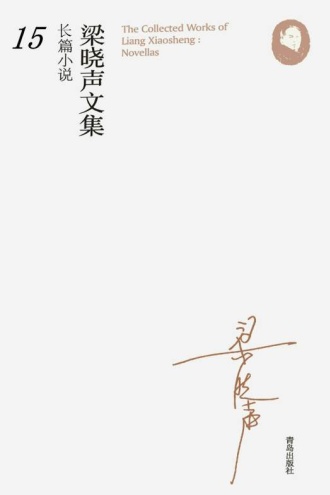 15
梁晓声文集
长篇小说
The Collected Works of
Liang Xiaosheng :
Novellas
梁晓声
青岛出版社